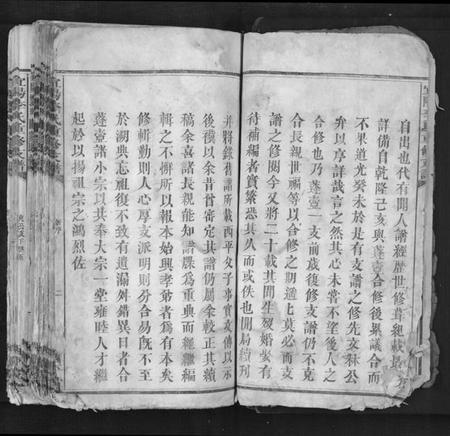 自出也代有聞人譜經歷世修葺總載最
詳備自乾隆己亥與蓬壺合修後累議合而
不果道光癸未於是有支譜之修先文林公
弁以序詳哉言之然其心未嘗不望後人之
合修也乃蓬壺一支前歲復修支譜仍不克
合長親世福等以合修之期適七莫必而支
譜之修閱今又將二十載其間生歿婚娶有
待補編者實繁恐其久而或佚也開局續刊
并將錄舊譜所載西平父子事實支傳以示
後複以余昔曾審定其譜仍屬余較正其續
稿余喜諸長親能知譜牒爲重典而經繼編
輯之不懈所以報本始興孝弟者爲有本矣
修輯勤則人心厚支派明則分合易既不至
於湖典忘祖復不致有遺漏舛錯異日者合
蓬壺諸小宗以其奉大宗一堂雍睦人才繼
起於以揚祖宗之鴻烈佐
氏重修族譜